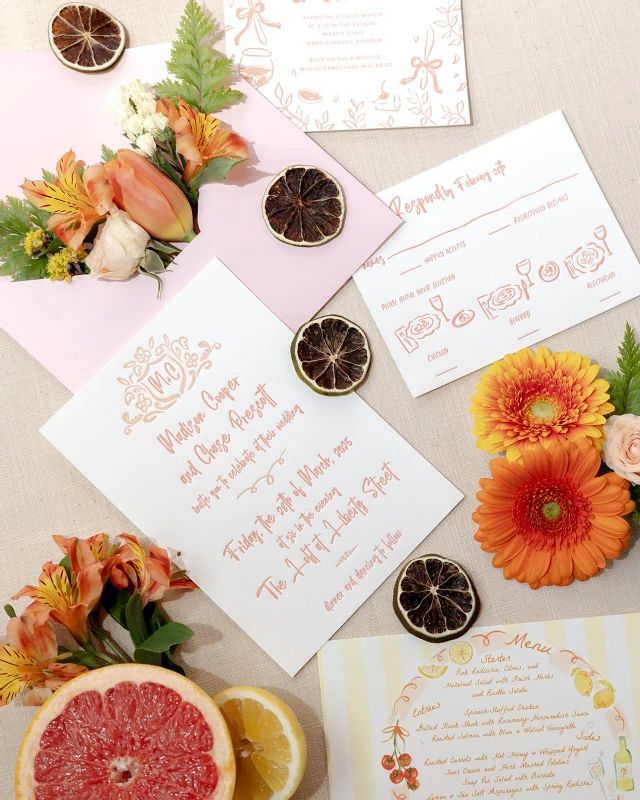 THURSDAY, 27TH OF MARCH
AT 6:30 IN THE EVENING
MAGGIE DINER
HARRISONBURG, VIRGINIA
RSVP ON THEIR WEBSITE
Respond by February 20th
HAPPILY ACCEPTS
REGRETFULLY DECLINES
PLEASE INITIAL YOUR SELECTION
CHICKEN
SEAFOOD
VEGETARIAN
M&C
Madison Cooper
and Chase Prescott
invite you to celebrate at their wedding
Friday, the 28th of March, 2025
at six in the evening
The Loft at Liberty Street
dinner and dancing to follow
Menu
Starter
Pink Radicchio, Citrus, and
Hazelnut Salad with Fresh Herbs
and Ricotta Salata
Entrées
Spinach-Stuffed Chicken
Grilled Flank Steak with Rosemary-Horseradish Sauce
Roasted Salmon with Olive & Walnut Vinaigrette
Sides
Roasted Carrots with Hot Honey & Whipped Yogurt
Sour Cream and Herb Mashed Potatoes
Snap Pea Salad with Burrata
Lemon & Sea Salt Asparagus with Spring Radishes